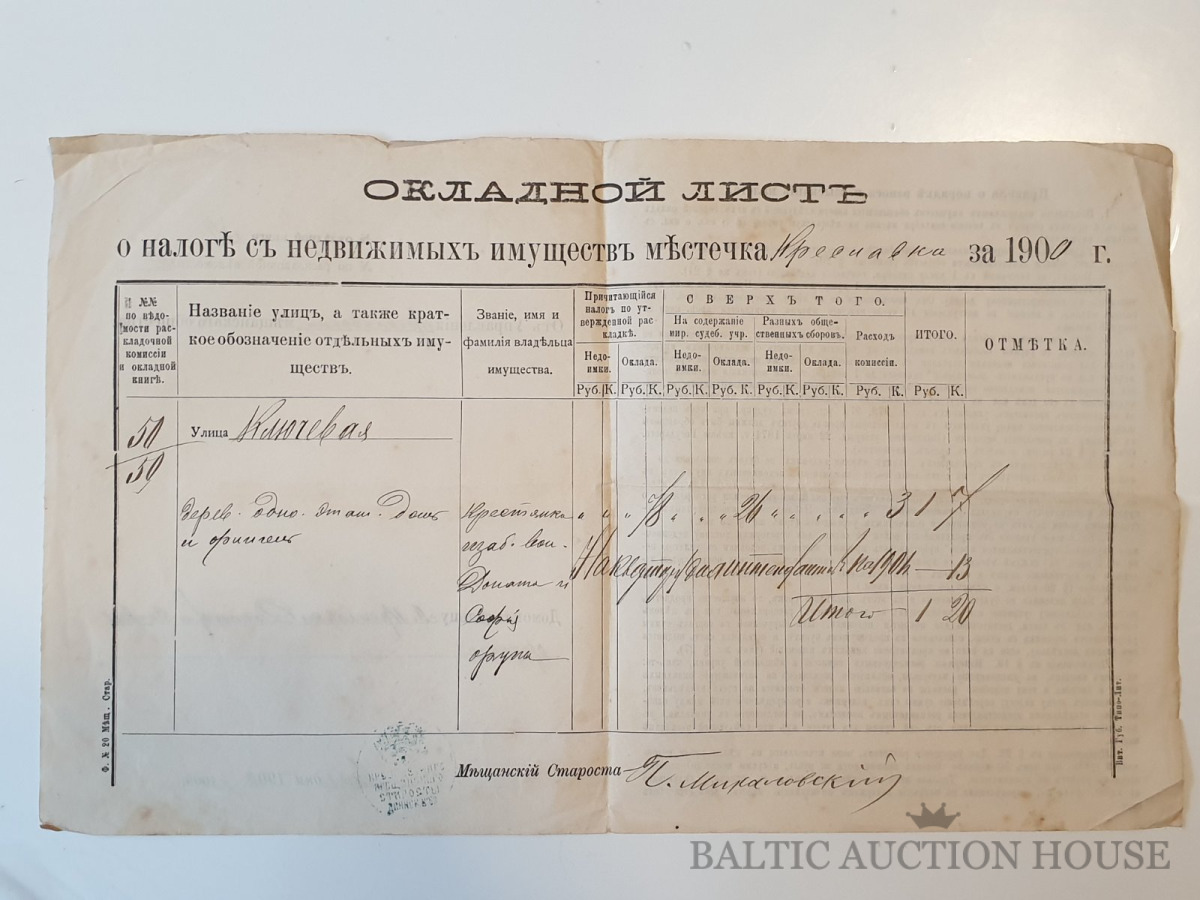 ОКЛАДНОЙ ЛИСТЪ
о налогѣ съ недвижимыхъ имуществъ мѣстечка Креславка за 1900 г.
№№ по вѣдомости раскладочной комиссіи и окладной книгѣ.
Названіе улицъ, а также краткое обозначеніе отдѣльныхъ имуществъ.
Званіе, имя и фамилія владѣльца имущества.
Причитающійся налогъ по утвержденной раскладкѣ.
СВЕРХЪ ТОГО.
На содержаніе мир. судеб. учр.
Разныхъ общественныхъ сборовъ.
Расходъ комиссіи.
ИТОГО.
ОТМѢТКА.
Недоимки. Оклада. Недоимки. Оклада. Недоимки. Оклада.
Руб. К. Руб. К. Руб. К. Руб. К. Руб. К. Руб. К. Руб. К. Руб. К.
50
50
Улица Ключевая
дерев. одно. этаж. домъ
и флигель
Крестянка
Доната и
Софія
" " " 78 " " " 26 " " " " " 3 1 7
13
Итого – 1 20
Мѣщанскій Староста
Ф. № 20 Мѣщ. Стар.
Вит. Губ. Типо-Лит.
BALTIC AUCTION HOUSE